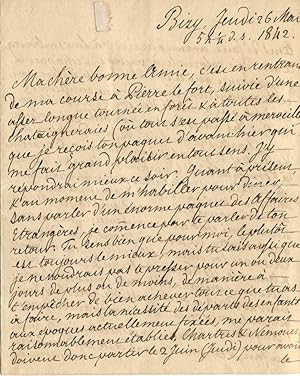 Bizy, Jeudi 26 Mai
5h 1/4 d. s. 1842.
Ma chère bonne Amie, c'est en rentrant
de ma course à Pierre le fort, suivie d'une
assez longue tournée en forêt & à toutes les
chataigneraies (où tout s'est passé à merveille)
que je reçois ton paquet d'avant hier qui
me fait grand plaisir en tout sens. J'y
repondrai mieux ce soir. Quant à présent
& au moment de m'habiller pour diner,
sans parler d'un énorme paquet des Affaires
Etrangères, je comence par te parler de ton
retour. Tu sens bien que pour moi, le plutôt
est toujours le mieux, mais tu sais aussi que
je ne voudrais pas te presser pour un ou deux
jours de plus ou de moins, de manière à
t'empêcher de bien achever tout ce que tu as
à faire, mais la nécessité des départs des enfants
aux époques actuellement fixées, me parait
raisonnablement établie, Chartres & Nemours
doivent donc partir le 2 Juin (Jeudi) pour avoir
le